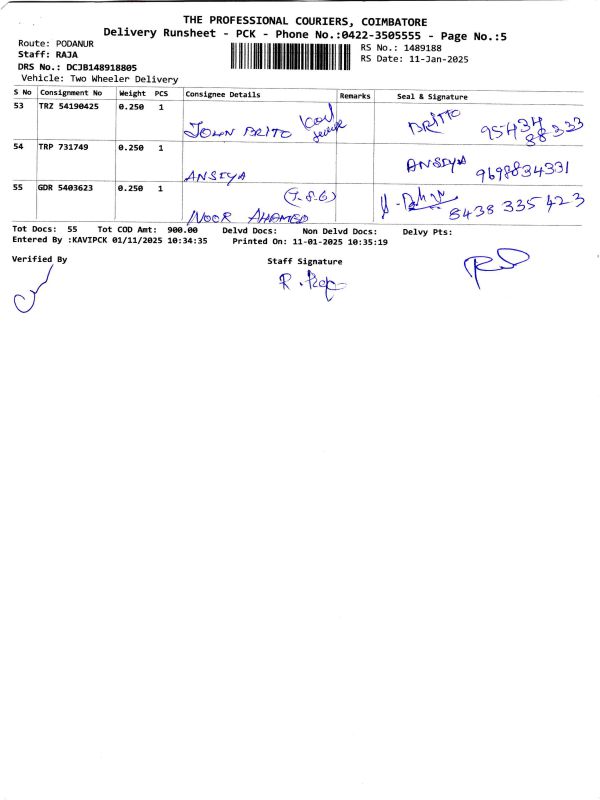 THE PROFESSIONAL COURIERS, COIMBATORE
Delivery Runsheet - PCK - Phone No.:0422-3505555 - Page No.:5
Route: PODANUR
Staff: RAJA
DRS No.: DCJB148918805
Vehicle: Two Wheeler Delivery
RS No.: 1489188
RS Date: 11-Jan-2025
S No Consignment No Weight PCS Consignee Details Remarks Seal & Signature
53 TRZ 54190425 0.250 1 JOHN BRITO BRITTO 95434 88333
54 TRP 731749 0.250 1 ANSIYA ANSIYA 9698834331
55 GDR 5403623 0.250 1 (7-8-6) NOOR AHAMED 8438 335 423
Tot Docs: 55 Tot COD Amt: 900.00 Delvd Docs: Non Delvd Docs: Delvy Pts:
Entered By :KAVIPCK 01/11/2025 10:34:35 Printed On: 11-01-2025 10:35:19
Verified By Staff Signature